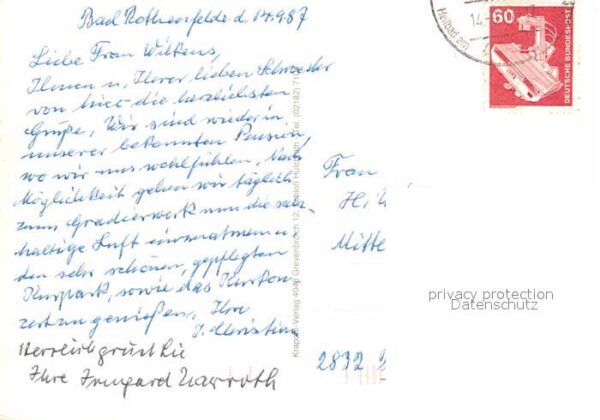 Bad Rothenfelde d. 14.9.87
Liebe Frau Wilkens,
Ihnen u. Ihrer lieben Schwester
von hier die herzlichsten
Grüße, Wir sind wieder in
unserer bekannten Pension,
wo wir uns wohlfühlen, Nach
Möglichkeit gehen wir täglich
zum Gradierwerk um die salz-
haltige Luft einzuatmen u
den sehr schönen, gepflegten
Kurpark, sowie das Kurkon-
zert zu genießen, Ihre
J. Christian
Herzlich grüßt Sie
Ihre Irmgard Nawroth
Krapohl-Verlag 4048 Grevenbroich 12, Tel. (02182)
Heilbad am
14.
60
DEUTSCHE BUNDESPOST
Frau
H. W
Mitte
2832
privacy protection
Datenschutz